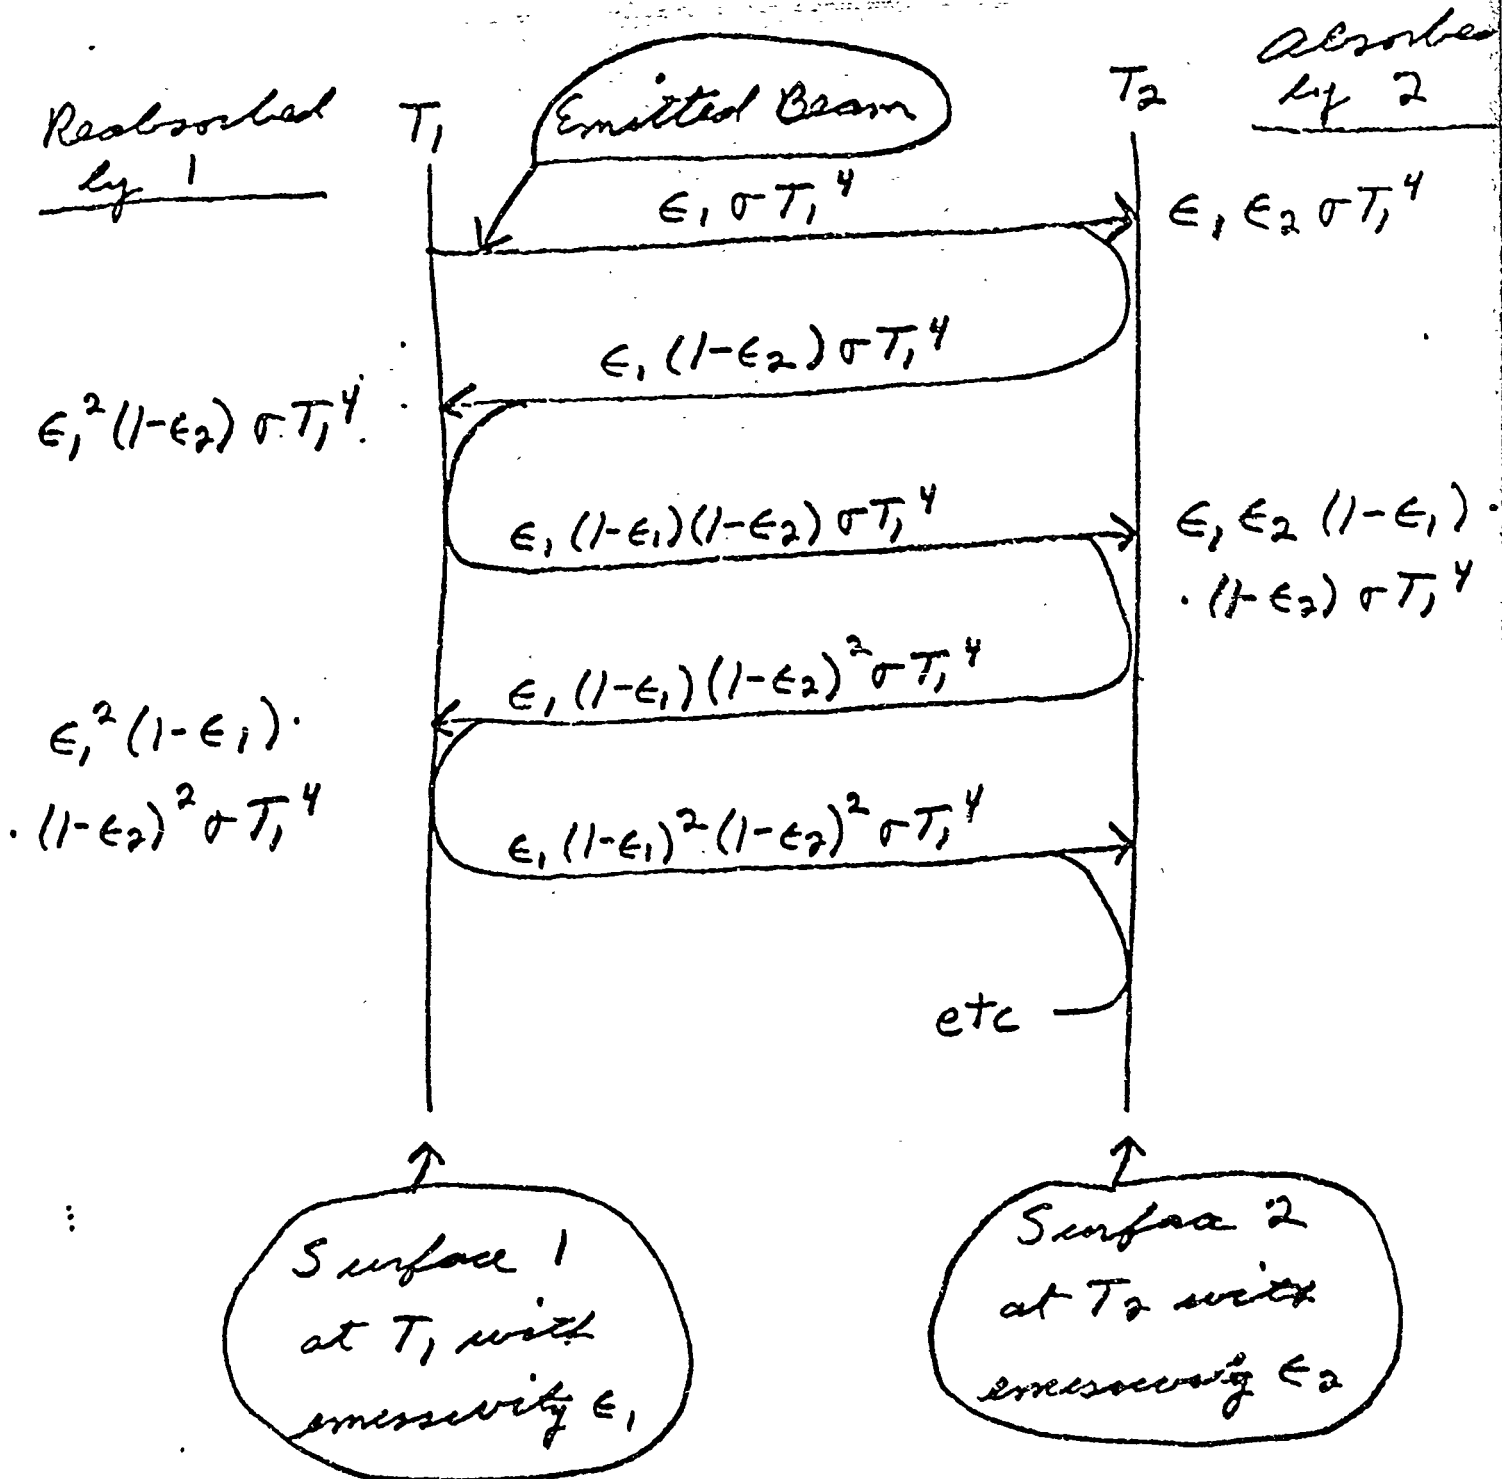 Reabsorbed
by 1
T₁
Emitted Beam
T₂
absorbed
by 2
ϵ₁ σT₁⁴
ϵ₁ ϵ₂ σT₁⁴
ϵ₁ (1-ϵ₂) σT₁⁴
ϵ₁² (1-ϵ₂) σT₁⁴
ϵ₁ (1-ϵ₁)(1-ϵ₂) σT₁⁴
ϵ₁ ϵ₂ (1-ϵ₁) ·
· (1-ϵ₂) σT₁⁴
ϵ₁ (1-ϵ₁) (1-ϵ₂)² σT₁⁴
ϵ₁² (1-ϵ₁) ·
· (1-ϵ₂)² σT₁⁴
ϵ₁ (1-ϵ₁)² (1-ϵ₂)² σT₁⁴
etc
Surface 1
at T₁ with
emissivity ϵ₁
Surface 2
at T₂ with
emissivity ϵ₂